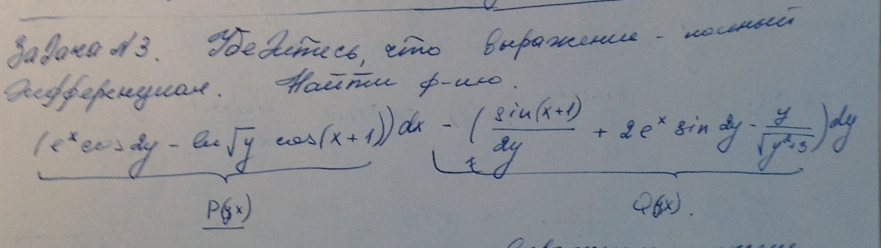 Задача №3. Убедитесь, что выражение - полный
дифференциал. Найти ф-ию.
(e^x cos 2y - ln √y cos(x+1))dx - (sin(x+1)/2y + 2e^x sin 2y - y/√(y²+3))dy
P(yx) Q(yx).